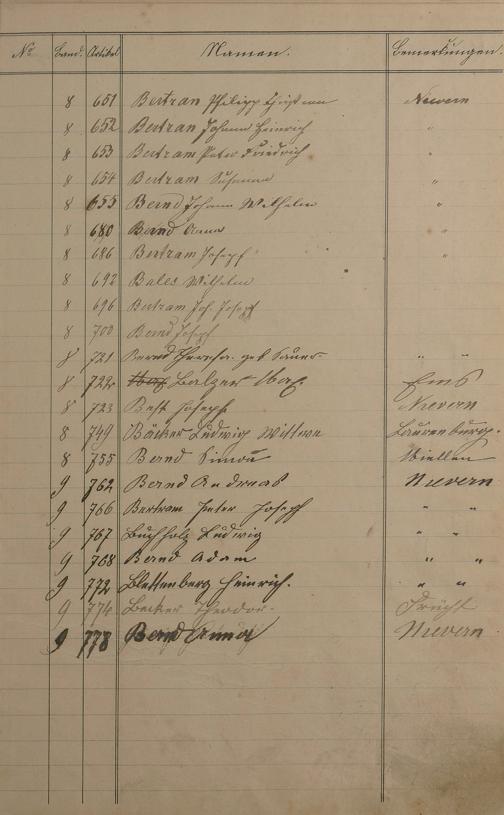 No Band. Artikel Namen. Bemerkungen.
8 651 Bertran Philipp Christian Nievern
8 652 Bertran Johann Heinrich "
8 653 Bertram Peter Friedrich "
8 654 Bertram Susanna "
8 655 Bernd Johann Wilhelm "
8 680 Bernd Anna "
8 686 Bertram Josepf "
8 692 Bales Wilhelm
8 696 Bertram Joh. Josepf
8 700 Bernd Josepf
8 721 Bernd geb Sauer " "
8 722 Balzer Ems
8 723 Best Joseph Nievern
8 749 Bäcker Ludwig Wittwe Laurenburg.
8 755 Bernd Simon Miellen
9 762 Bernd Andreas Nievern
9 766 Bertram Peter Joseph " "
9 767 Buchholz Ludwig " "
9 768 Bernd Adam " "
9 772 Blettenberg Heinrich. " "
9 774 Becker Theodor. Frücht
9 778 Bernd Nievern